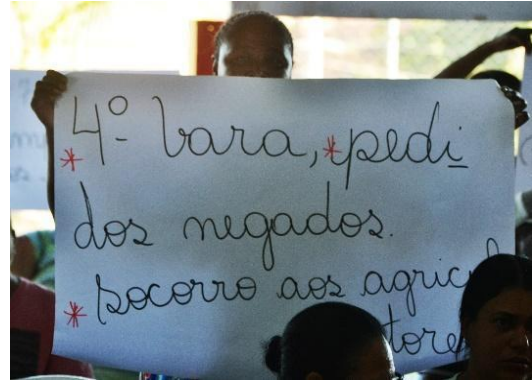 * 4º vara, * pedi
dos negados.
* socorro aos agricul
tore